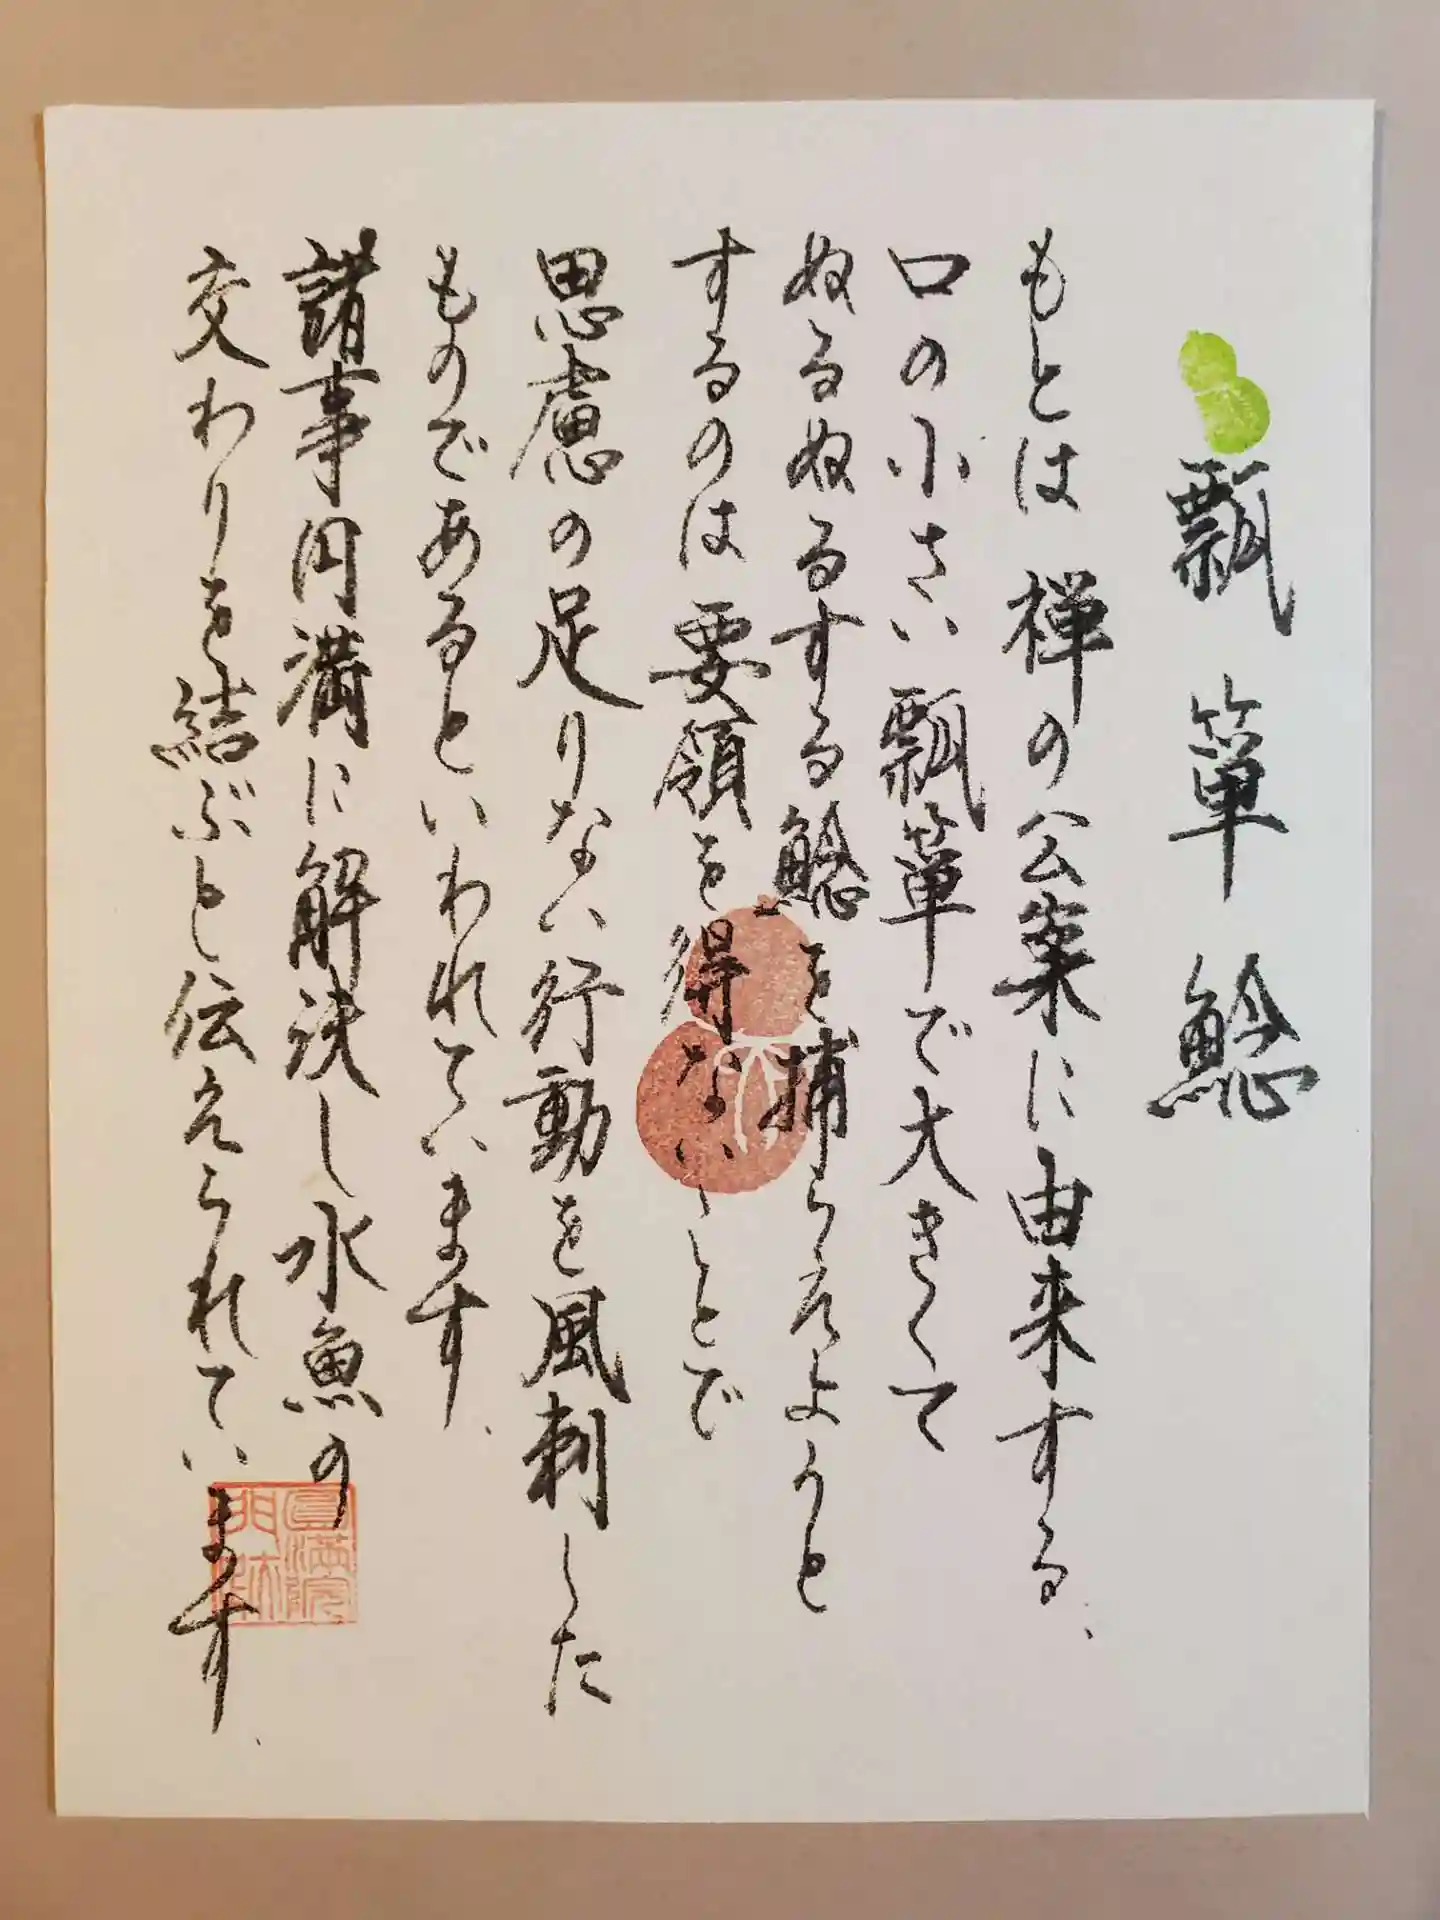 瓢箪鯰
もとは禅の公案に由来する、
口の小さい瓢箪で大きくて
ぬるぬるする鯰を捕らえようと
するのは要領を得ないことで
思慮の足りない行動を風刺した
ものであるといわれています、
諸事円満に解決し水魚の
交わりを結ぶと伝えられています、
圓満院
門跡